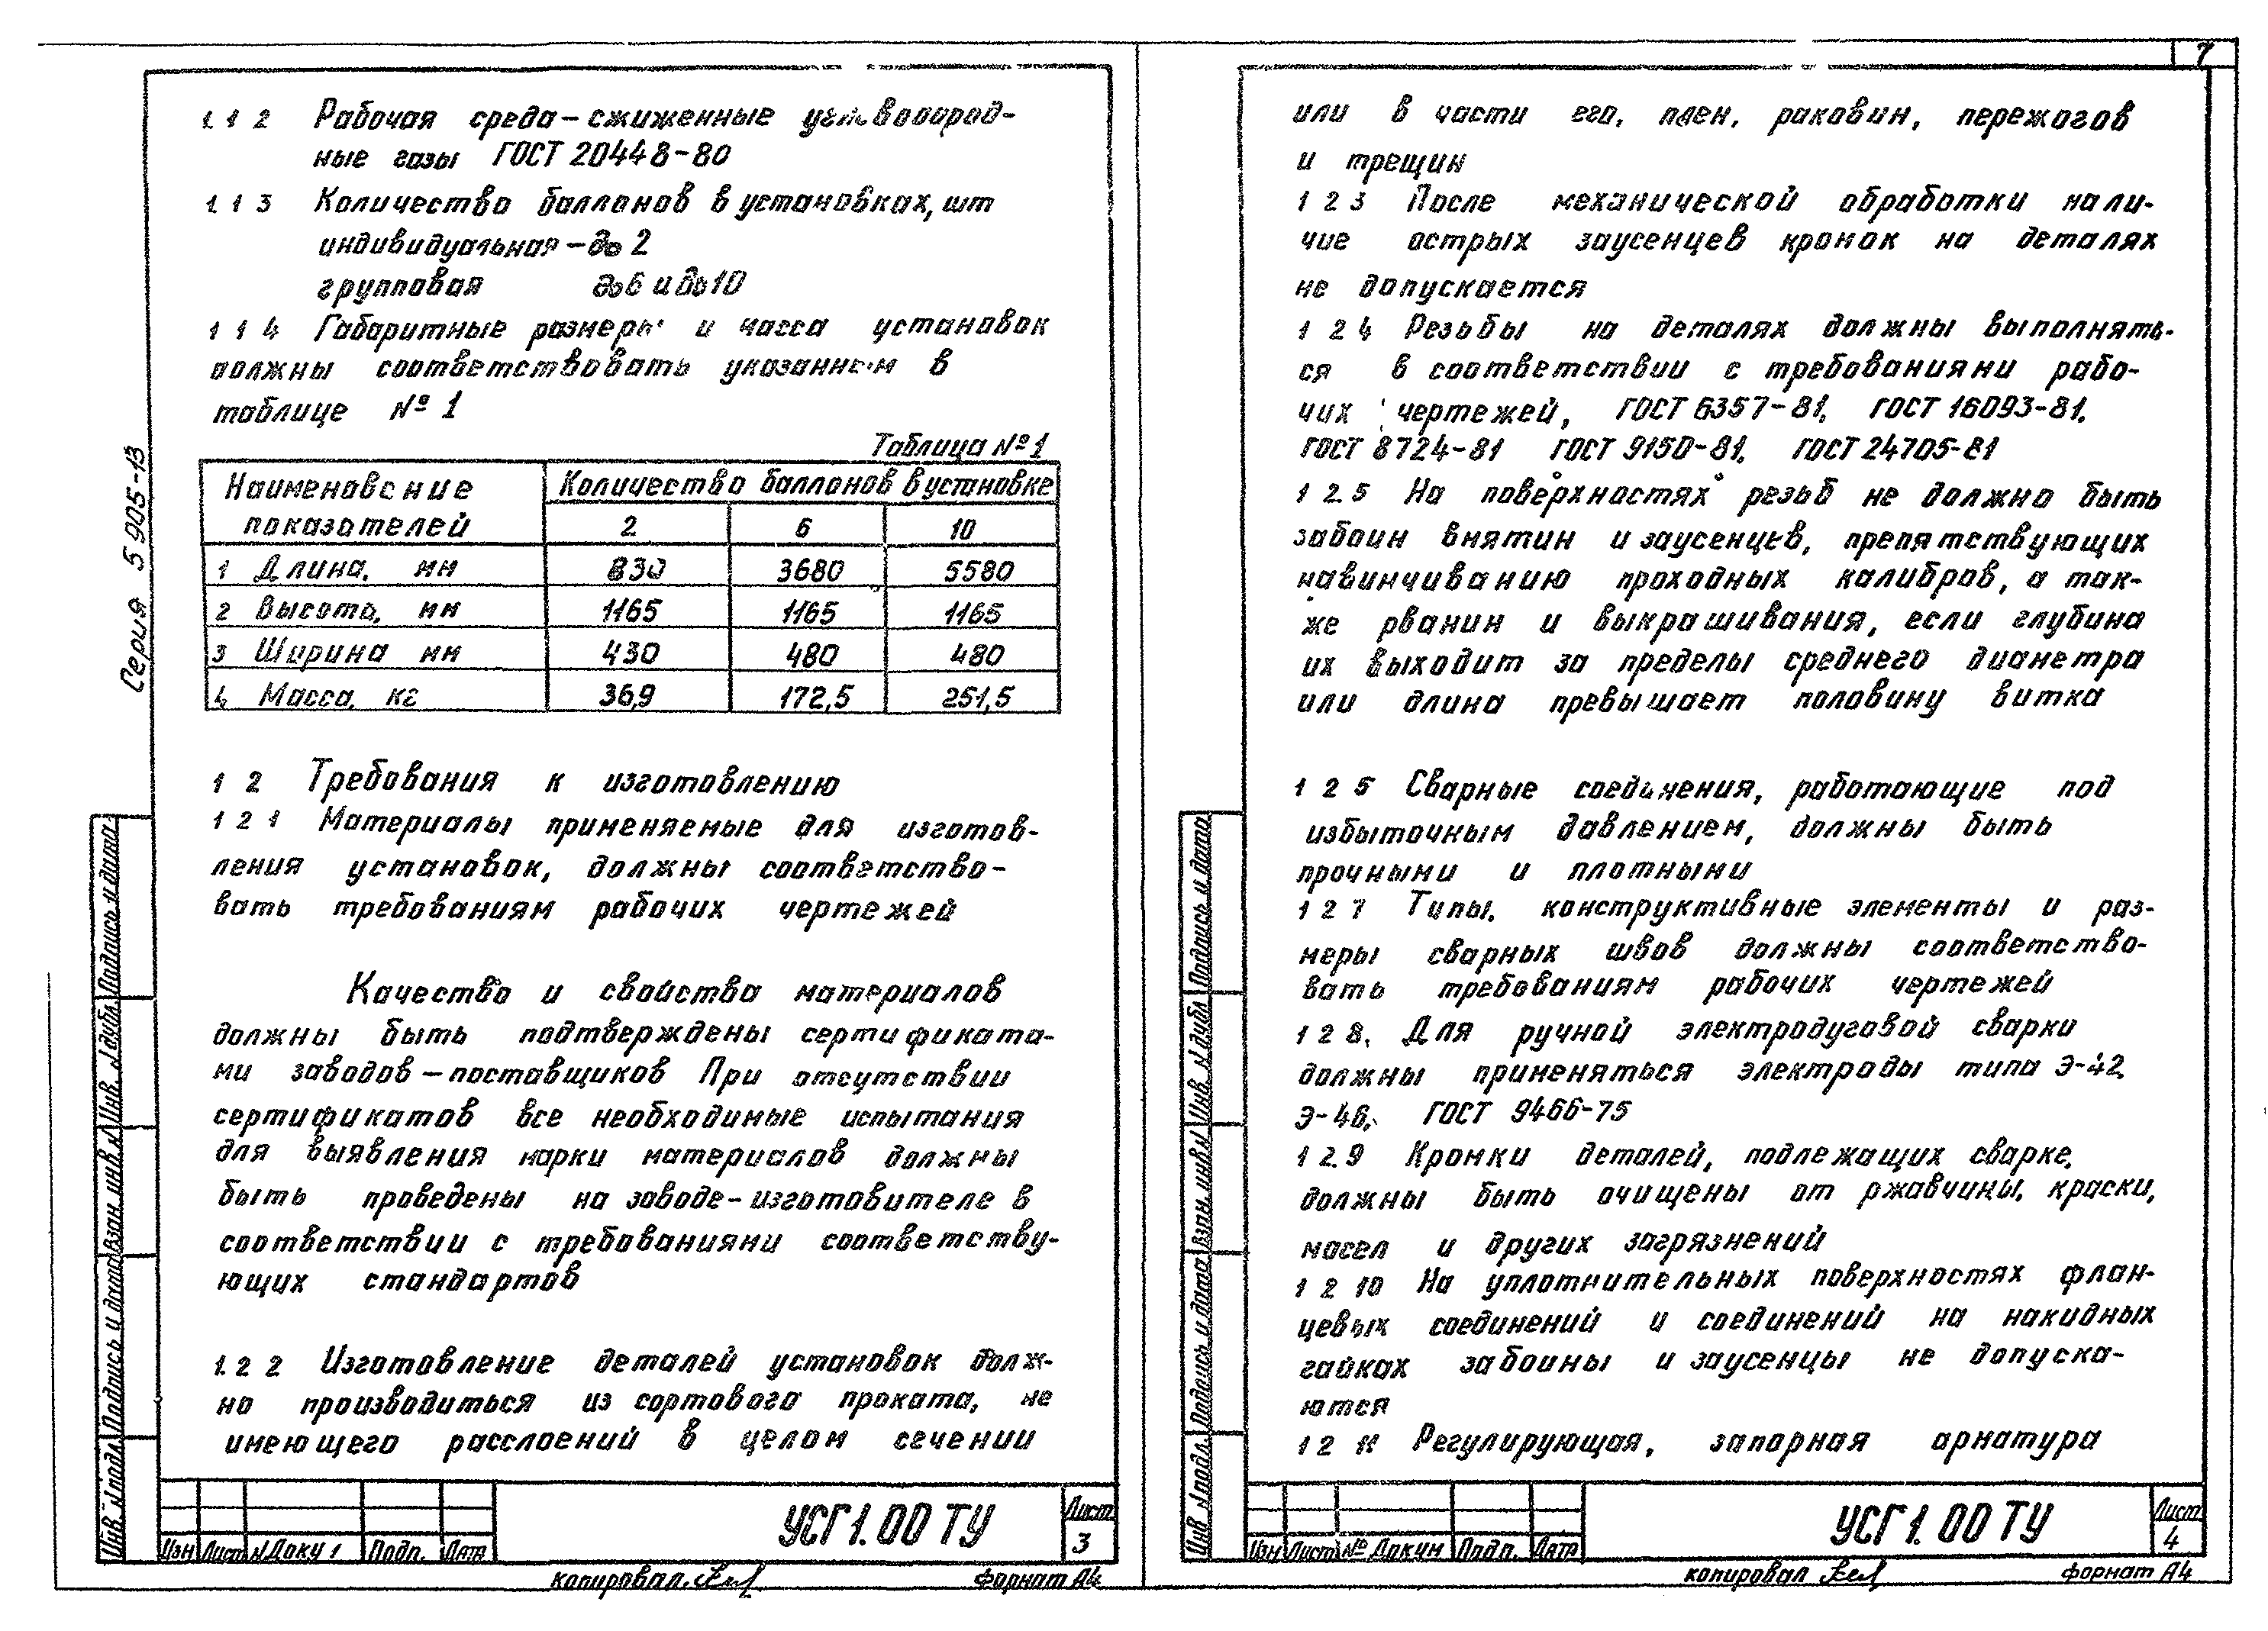 7
1.1 2 Рабочая среда – сжиженные углеводород-
ные газы ГОСТ 20448-80
1.1 3 Количество баллонов в установках, шт
индивидуальная – до 2
групповая до 6 и до 10
1 1 4 Габаритные размеры и масса установок
должны соответствовать указанным в
таблице № 1
Таблица № 1
Наименование показателей | Количество баллонов в установке
2 | 6 | 10
1 Длина, мм | 830 | 3680 | 5580
2 Высота, мм | 1165 | 1165 | 1165
3 Ширина мм | 430 | 480 | 480
4 Масса, кг | 36,9 | 172,5 | 251,5
1 2 Требования к изготовлению
1 2 1 Материалы применяемые для изготов-
ления установок, должны соответство-
вать требованиям рабочих чертежей
Качество и свойства материалов
должны быть подтверждены сертификата-
ми заводов – поставщиков При отсутствии
сертификатов все необходимые испытания
для выявления марки материалов должны
быть проведены на заводе – изготовителе в
соответствии с требованиями соответству-
ющих стандартов
1.2 2 Изготовление деталей установок долж-
но производиться из сортового проката, не
имеющего расслоений в целом сечении
Серия 5 905-13
Подпись и дата
Инв. № дубл
Взам. инв. №
Подпись и дата
Инв № подл.
Изм Лист № Доку Подп. Дата
УСГ 1.00 ТУ
Лист
3
копировал
формат А4
или в части его, плен, раковин, пережогов
и трещин
1 2 3 После механической обработки нали-
чие острых заусенцев кромок на деталях
не допускается
1 2 4 Резьбы на деталях должны выполнять-
ся в соответствии с требованиями рабо-
чих чертежей, ГОСТ 6357-81, ГОСТ 16093-81,
ГОСТ 8724-81 ГОСТ 9150-81, ГОСТ 24705-81
1 2.5 На поверхностях резьб не должно быть
забоин вмятин и заусенцев, препятствующих
навинчиванию проходных калибров, а так-
же рванин и выкрашивания, если глубина
их выходит за пределы среднего диаметра
или длина превышает половину витка
1 2 5 Сварные соединения, работающие под
избыточным давлением, должны быть
прочными и плотными
1 2 7 Типы, конструктивные элементы и раз-
меры сварных швов должны соответство-
вать требованиям рабочих чертежей
1 2 8. Для ручной электродуговой сварки
должны применяться электроды типа Э-42,
Э-46, ГОСТ 9466-75
1 2.9 Кромки деталей, подлежащих сварке,
должны быть очищены от ржавчины, краски,
масел и других загрязнений
1 2 10 На уплотнительных поверхностях флан-
цевых соединений и соединений на накидных
гайках забоины и заусенцы не допуска-
ются
1 2 11 Регулирующая, запорная арматура
Подпись и дата
Инв. № дубл
Взам. инв. №
Подпись и дата
Инв № подл.
Изм Лист № Докум Подп. Дата
УСГ 1.00 ТУ
Лист
4
копировал
формат А4